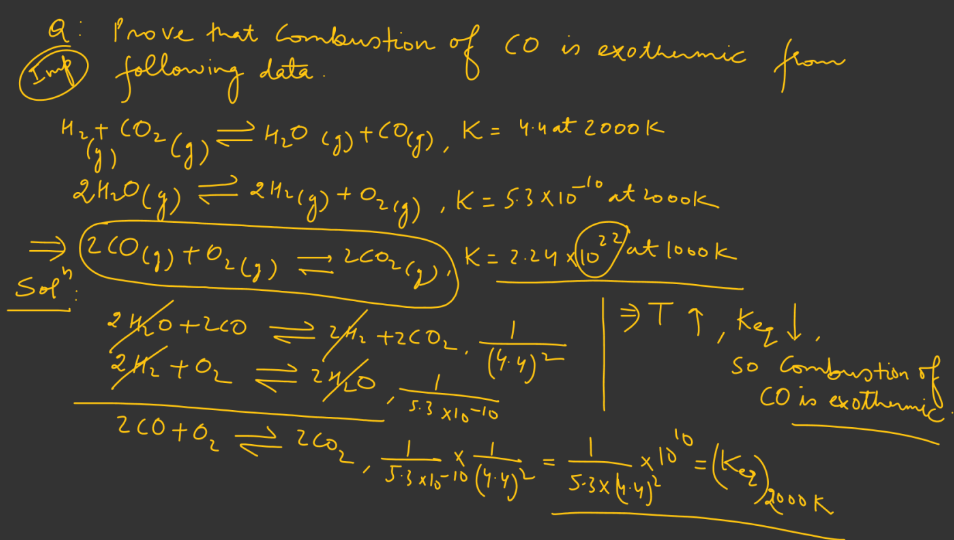 Q: Prove that Combustion of CO is exothermic from
Imp following data.
H₂(g) + CO₂(g) ⇌ H₂O(g) + CO(g), K = 4.4 at 2000K
2H₂O(g) ⇌ 2H₂(g) + O₂(g), K = 5.3 × 10⁻¹⁰ at 2000K
⇒ 2CO(g) + O₂(g) ⇌ 2CO₂(g), K = 2.24 × 10²² at 1000K
Solⁿ:
2H₂O + 2CO ⇌ 2H₂ + 2CO₂, 1/(4.4)²
2H₂ + O₂ ⇌ 2H₂O, 1/5.3 × 10⁻¹⁰
2CO + O₂ ⇌ 2CO₂, 1/5.3 × 10⁻¹⁰ × 1/(4.4)² = 1/5.3 × (4.4)² × 10¹⁰ = (Keq)2000K
⇒ T ↑, Keq ↓,
so Combustion of
CO is exothermic.